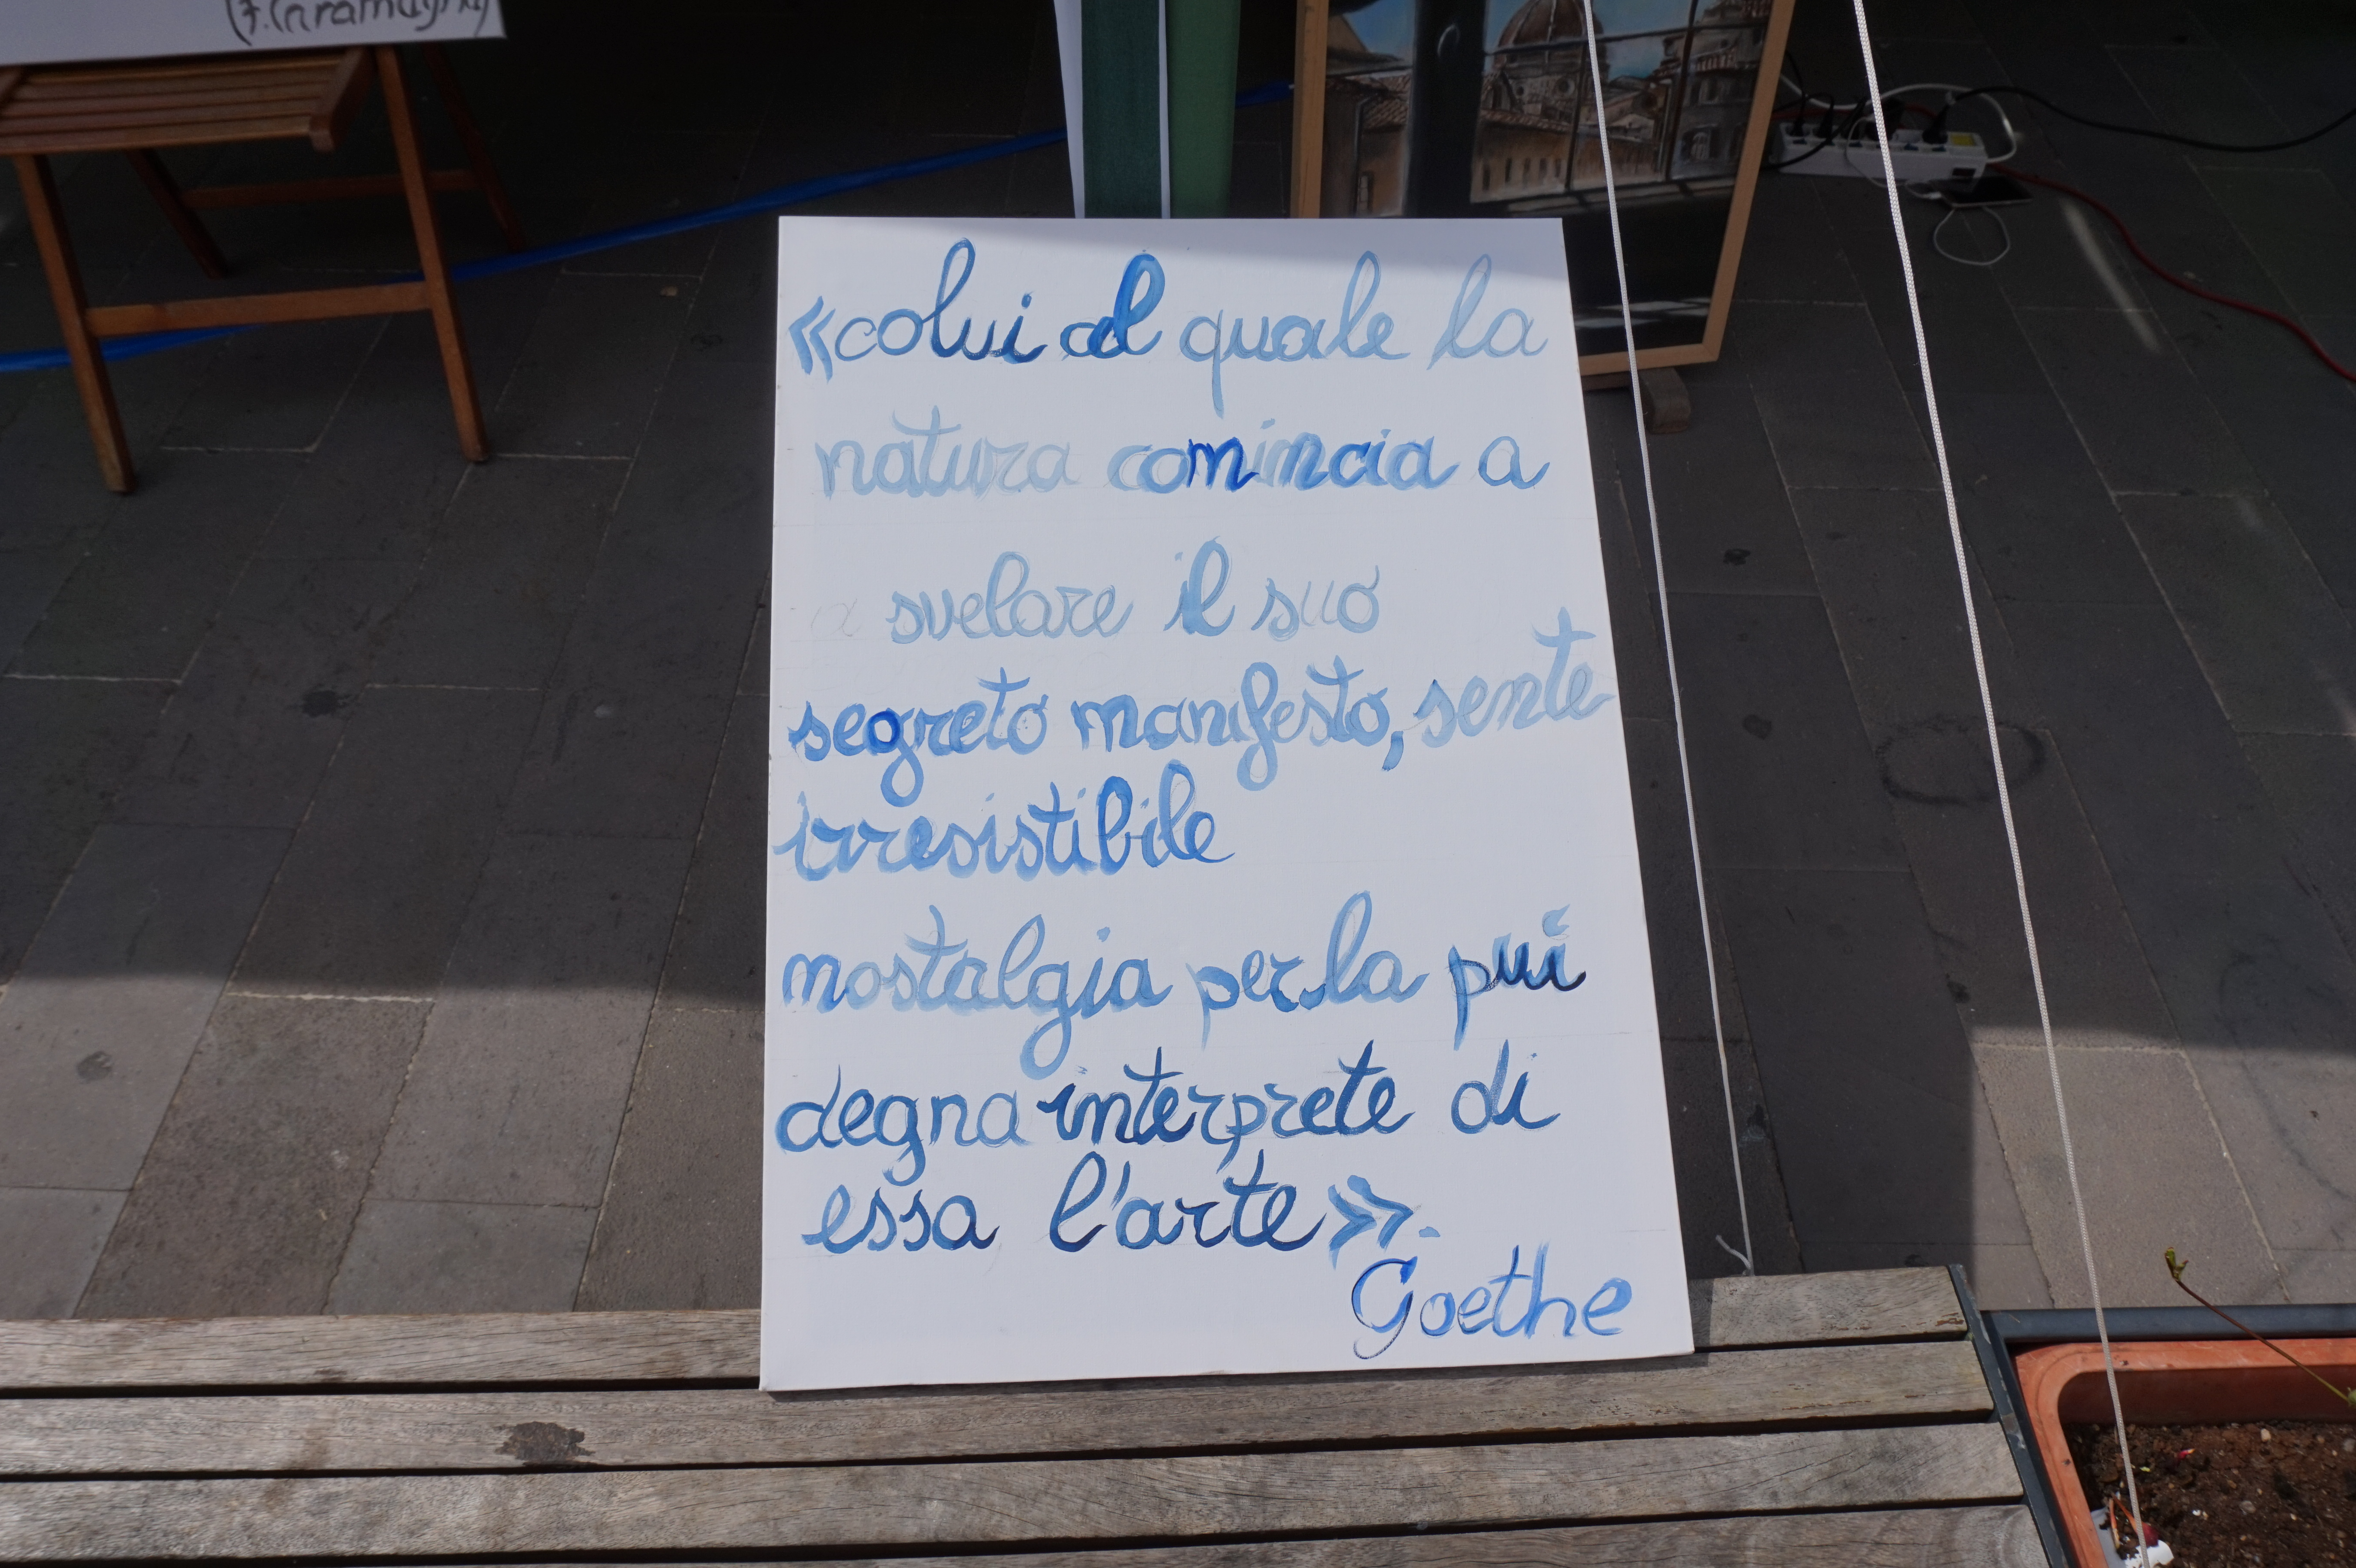 (F. Caramagna)
«colui al quale la
natura comincia a
svelare il suo
segreto manifesto, sente
irresistibile
nostalgia per la puì
degna interprete di
essa l'arte».
Goethe